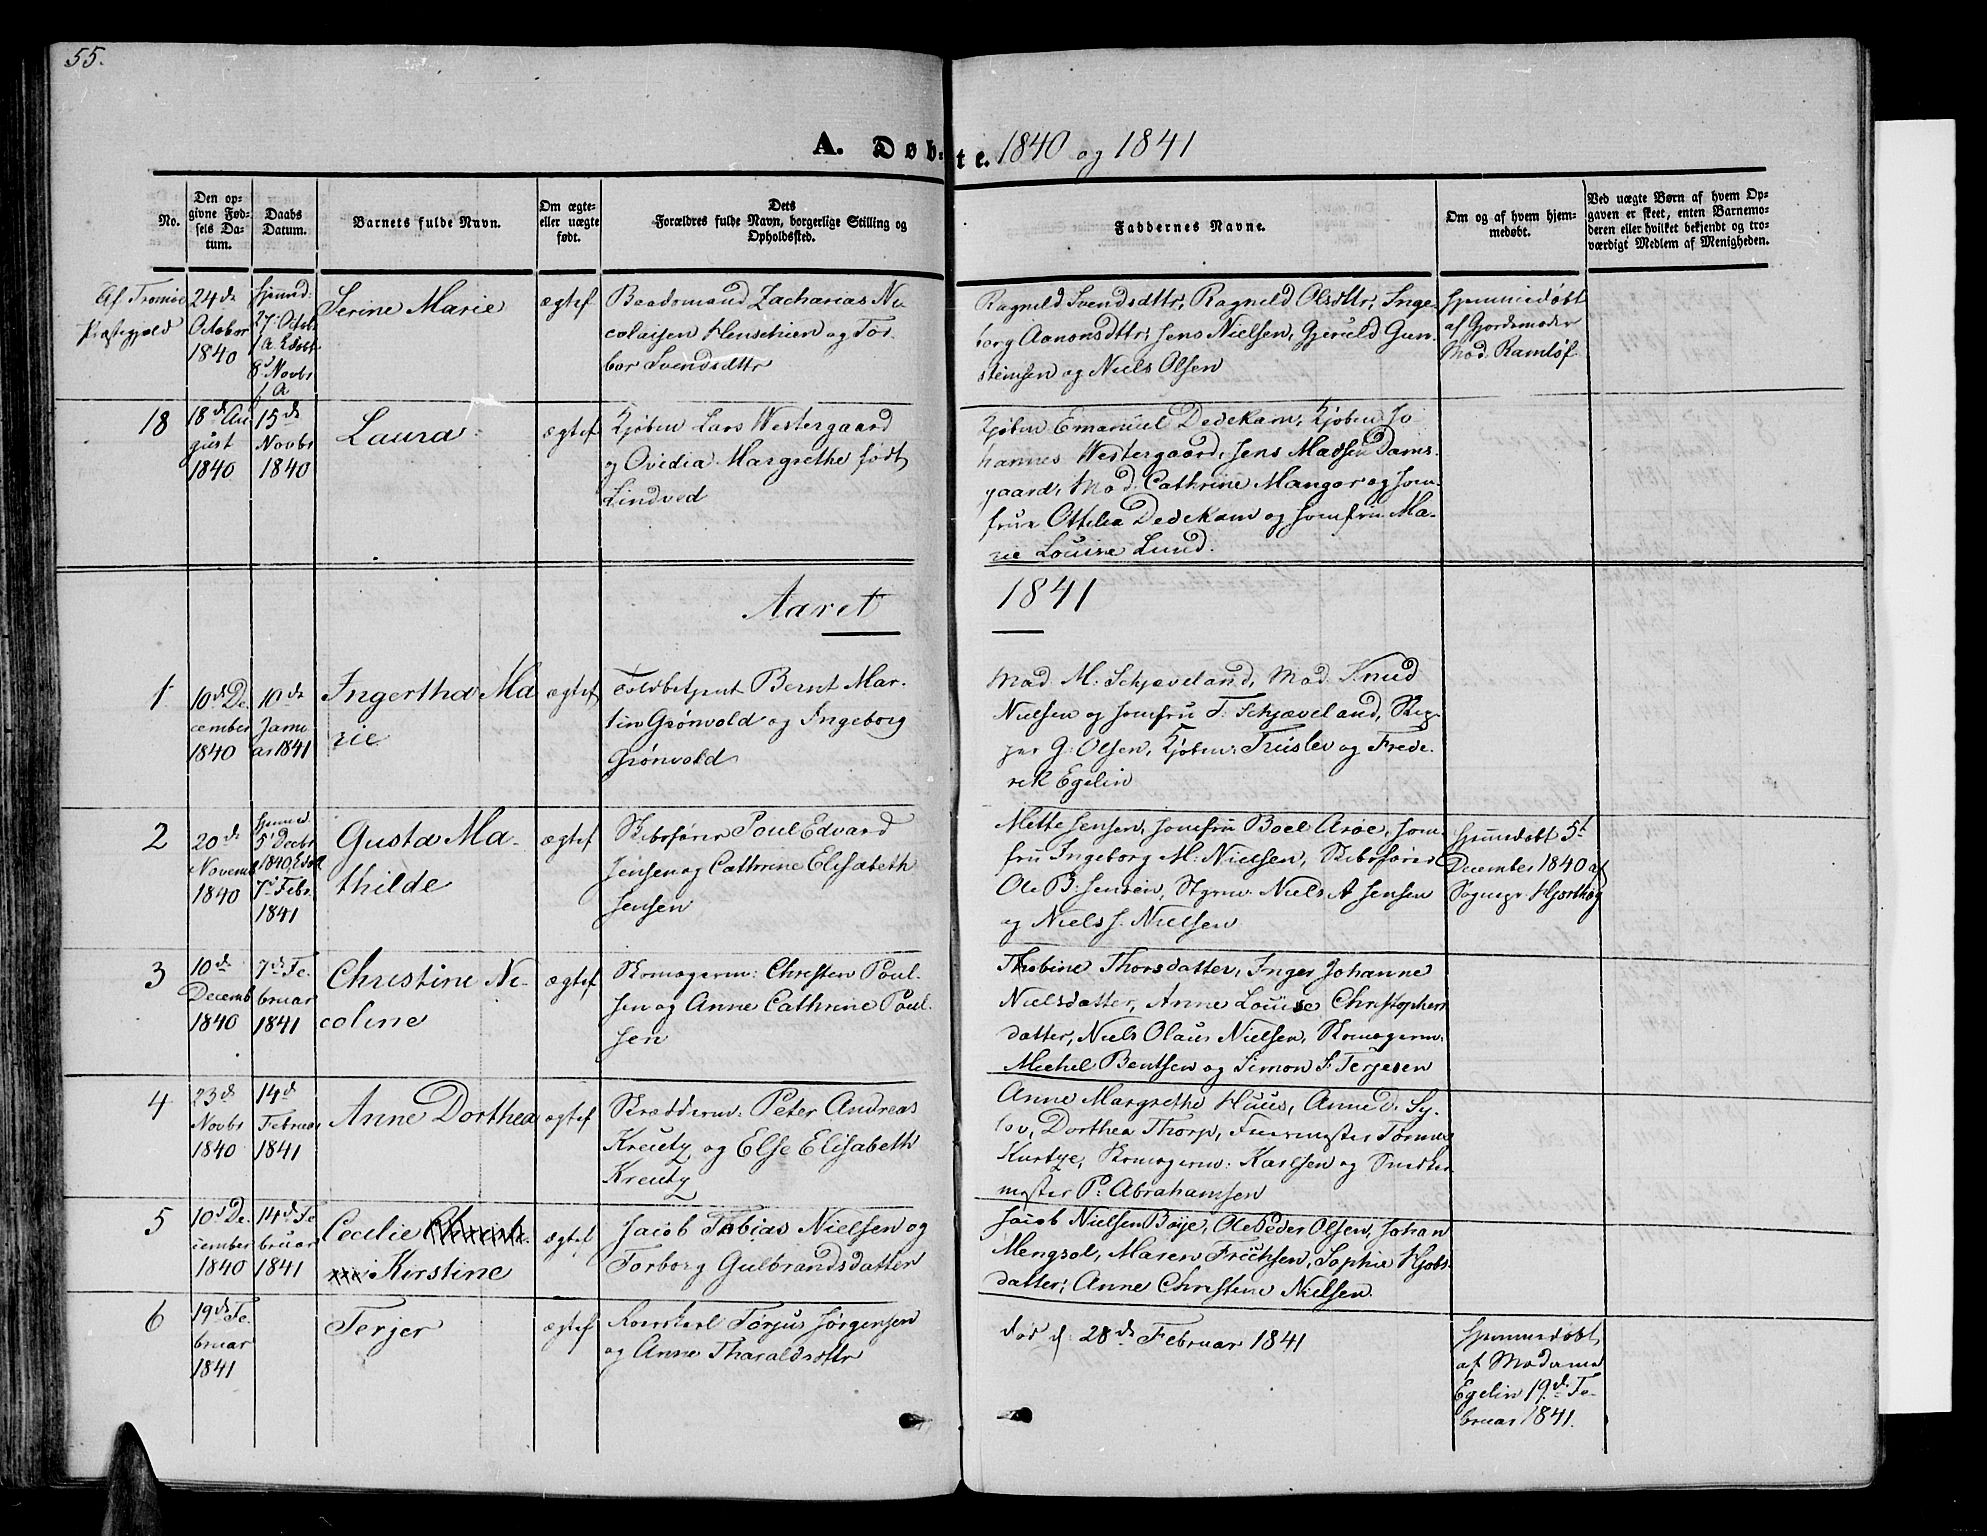 55.
A. Døbte. 1840 og 1841
No.
Den op-
givne Fød-
sels Da-
tum.
Daabs
Datum.
Barnets fulde Navn.
Om ægte-
eller uægte
født.
Dets
Forældres fulde Navn, borgerlige Stilling og
Opholdssted.
Faddernes Navne.
Om og af hvem hjem-
medøbt.
Ved uægte Børn af hvem Op-
gaven er skeet, enten Barnemo-
deren eller hvilket bekjendt og tro-
værdigt Medlem af Menigheden.
Af Tromøe
Præstegjeld
24de
October
1840
hjemmd:
27. Octob
8d Novbr
Serine Marie
ægtef
Baadsmand Zacharias Ni-
colaisen Henschien og Tor-
bor Svendsdttr
Ragnild Svendsdttr, Ragnild Olsdttr, Inge-
borg Aanonsdttr, Jens Nielsen, Gjeruld Gun-
steinsen og Niels Olsen
hjemmedøbt
af Gjordemoder
Mad. Ramløf
18
18d Au
gust
1840
15de
Novbr
1840
Laura
ægtef
Kjøbm Lars Westergaard
og Ovidia Margrethe født
Lindved
Kjøbm Emanuel Dedekam, Kjøbm Jo
hannes Westergaard, Jens Madsen Dams-
gaard, Mad. Cathrine Mangor og Jom-
frue Ottilia Dedekam og Jomfru Ma-
rie Louise Lund.
Aaret 1841
1
10de De
cember
1840
10de
Janu
ar 1841
Ingertha Ma
rie
ægtef
Toldbetjent Bernt Mar-
tin Grønvold og Ingeborg
Grønvold
Mad. M: Schjæveland, Mad. Knud
Nielsen og Jomfru T: Schjæveland, Skip-
per G: Olsen, Kjøbm: Truslev og Frede-
rik Egelin
2
20de
Novemb
1840
hjemmed
5t Decbr
1840
7de Febr.
1841
Gusta Ma-
thilde
ægtef
Skibsfører Poul Edvard
Jensen og Cathrine Elisabeth
Jensen
Mette Jensen, Jomfru Boel Arøe, Jom-
fru Ingeborg M: Nielsen, Skibsfører
Ole B: Jensen, Styrm: Niels A Jensen
og Niels J. Nielsen
hjemmdøbt 5t
December 1840 af
Sognepr Hjorthøg
3
10de
Decemb
1840
7de Fe
bruar
1841
Christine Ni-
coline
ægtef
Skomagerm: Christen Poul-
sen og Anne Cathrine Poul-
sen
Thobine Thorsdatter, Inger Johanne
Nielsdatter, Anne Louise Christophers
datter, Niels Olaus Nielsen, Skomagerm.
Michel Bentsen og Simon F. Terjesen
4
23de
Novbr
1840
14de
Februar
1841
Anne Dorthea
ægtef
Skrædderm: Peter Andreas
Kreutz og Else Elisabeth
Kreutz
Anne Margrethe Huus, Anne v. Sy-
lov, Dorthea Thorp,
Skomagerm: Karlsen og Snedker
mester P: Abrahamsen
5
10d De-
cember
1840
14de Fe
bruar
1841
Cecilie
Kirstine
ægtef
Jacob Tobias Nielsen og
Torborg Gulbrandsdatter
Jacob Nielsen Boije, Ole Peder Olsen, Johan
Mengsol, Maren Friichsen, Sophie
datter, Anne Christine Nielsen.
6
19de Fe
bruar
1841
Terjer
ægtef
Torjus Jørgensen
og Anne Tharaldsdttr
død d: 28de Februar 1841
hjemmedøbt
af Madame
Egelin 19de Fe-
bruar 1841.